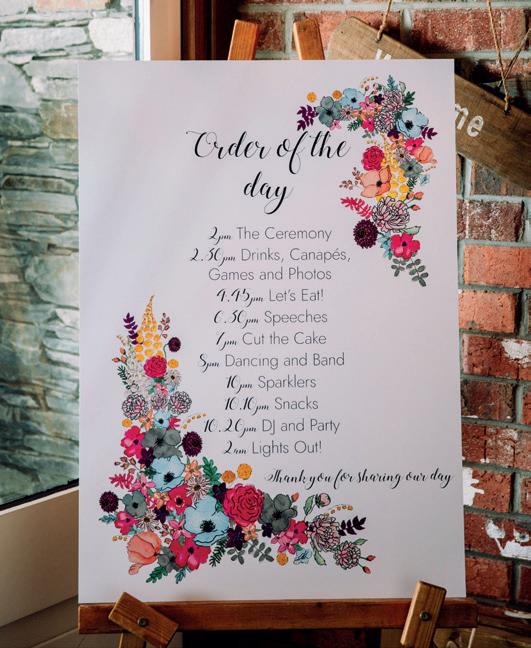 Order of the
day
2pm The Ceremony
2.30pm Drinks, Canapés,
Games and Photos
4.45pm Let's Eat!
6.30pm Speeches
7pm Cut the Cake
8pm Dancing and Band
10pm Sparklers
10.10pm Snacks
10.20pm DJ and Party
2am Lights Out!
Thank you for sharing our day